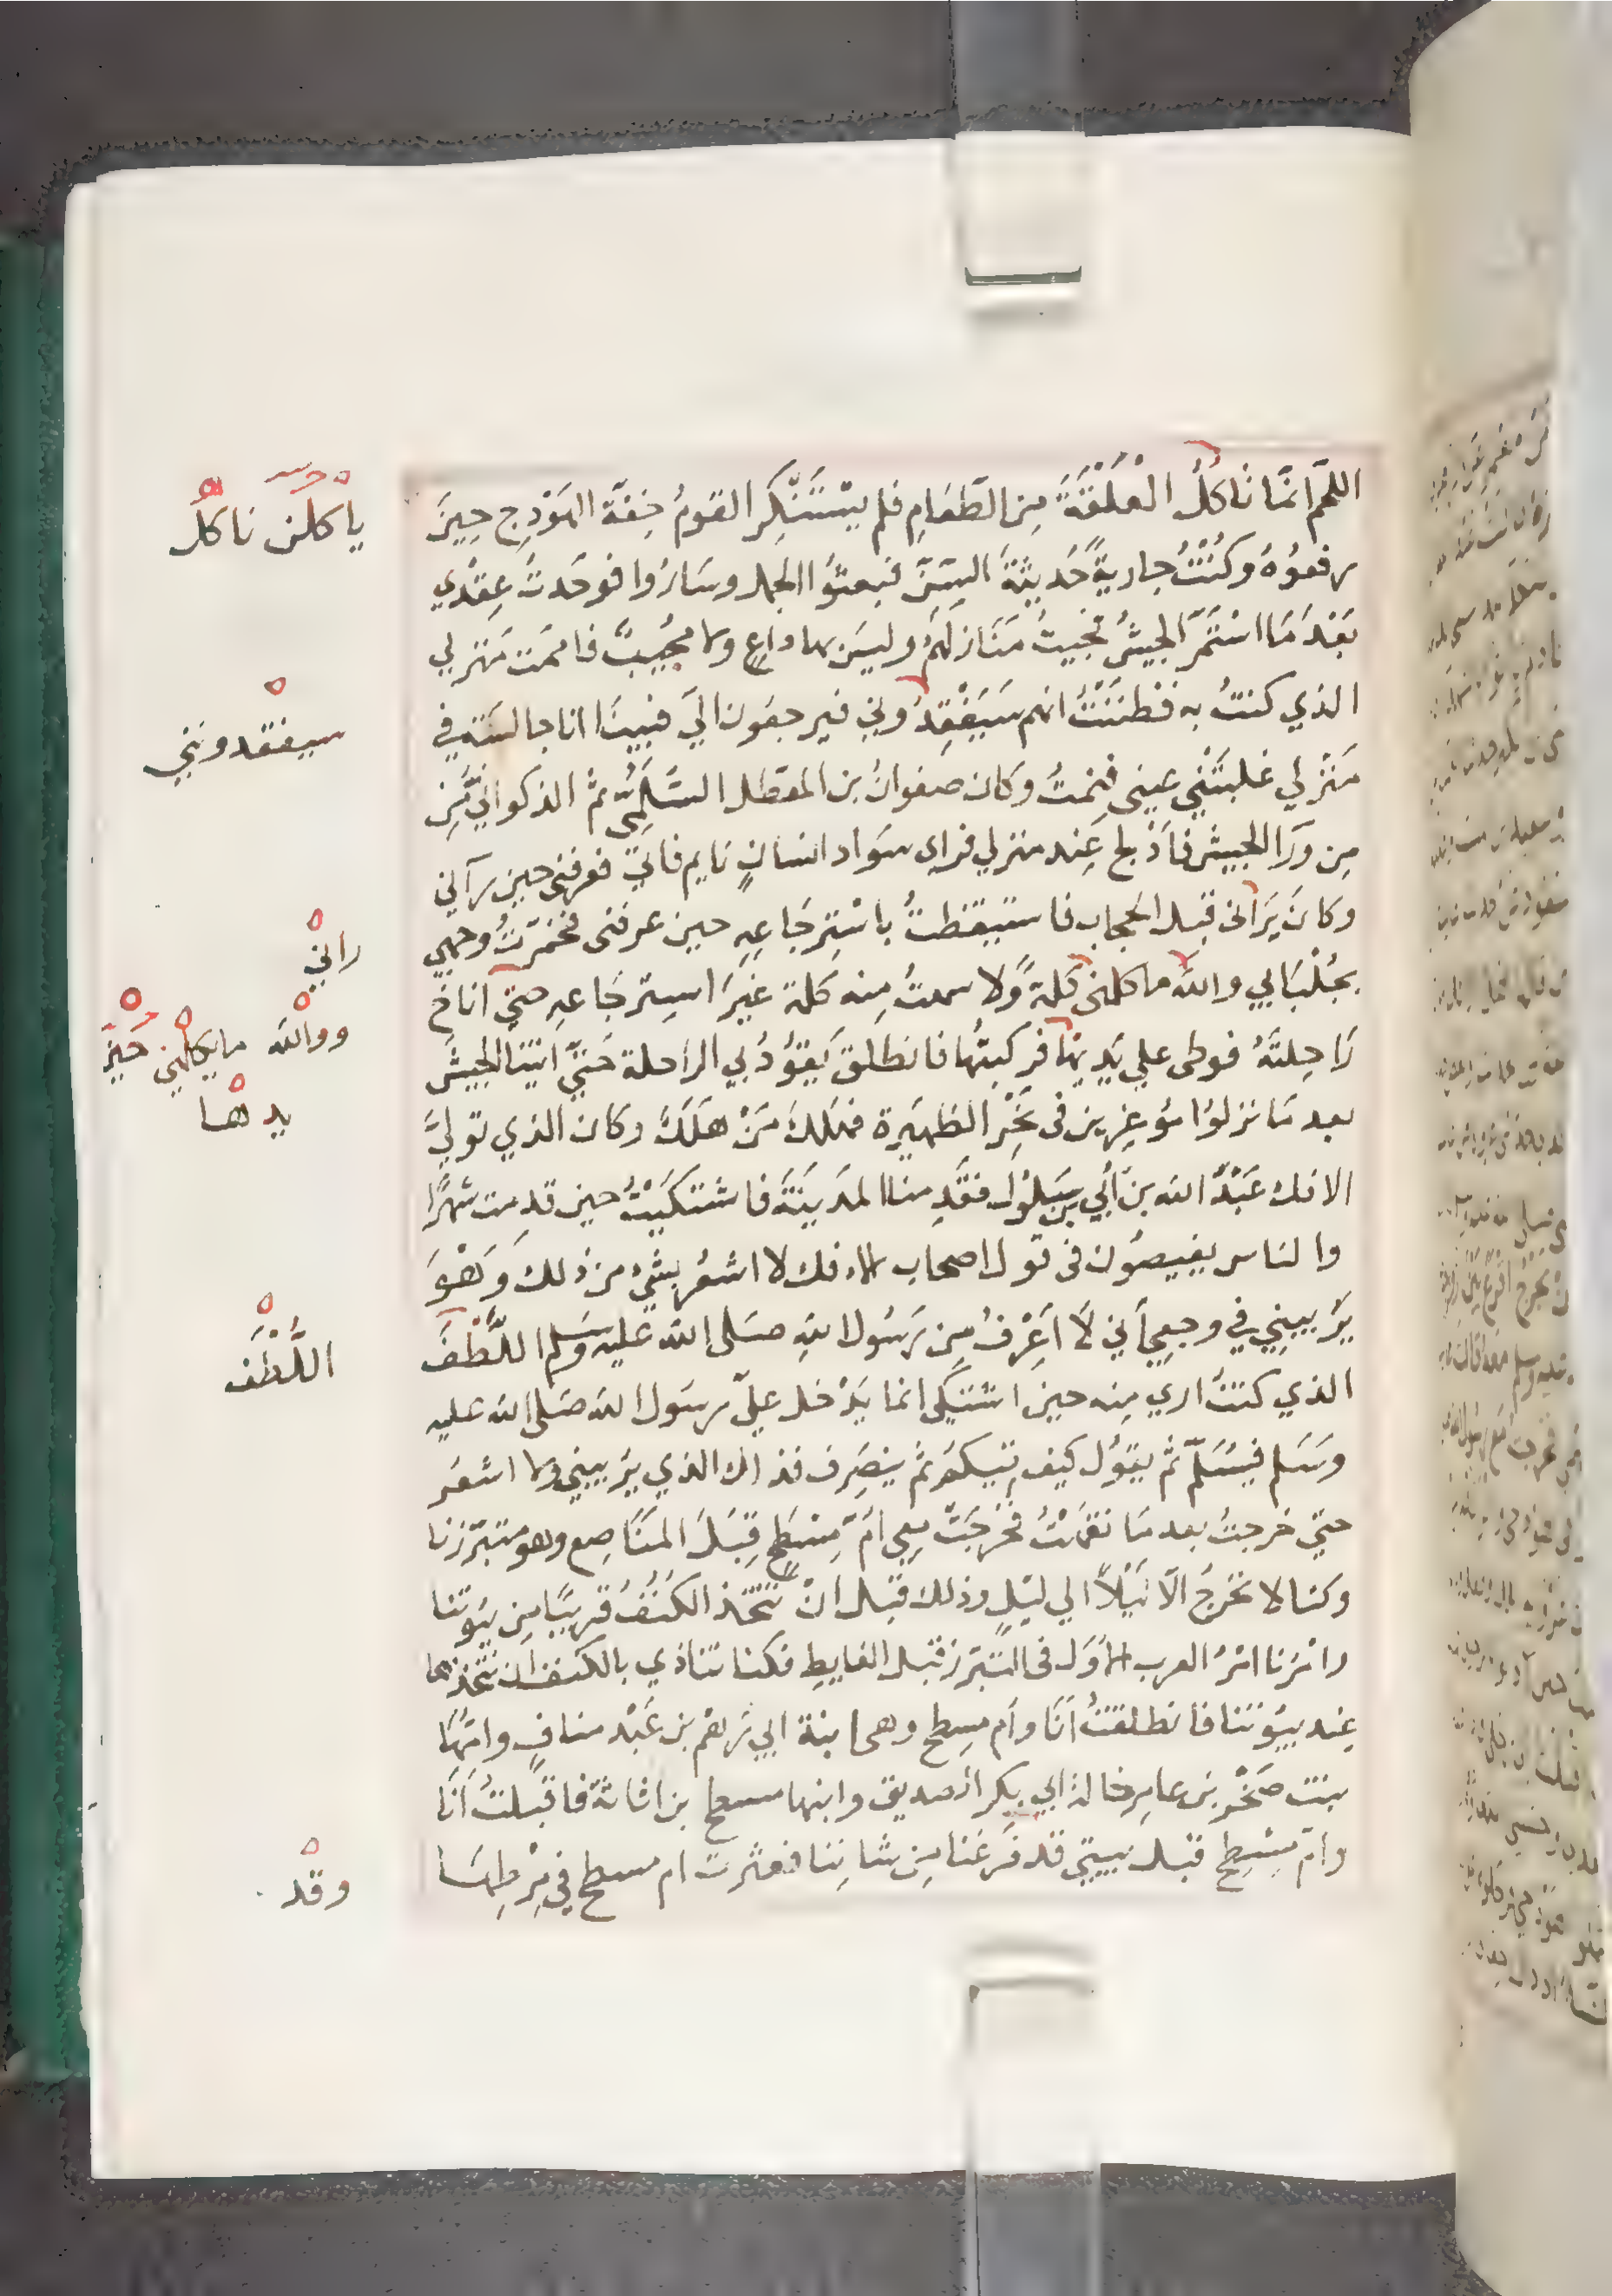 اللحم انما ناكل العُلْقَةَ مِن الطَّعَامِ فلم يَسْتَنْكِر القومُ خِفَّةَ الهَوْدِج حِينَ
رفعوُهُ وكُنْتُ جاريةً حَديثَةَ السِّنِّ فبعثوُا الجمل وسَارُوا فوجَدتُ عِقْدي
بَعْدَ مَا اسْتَمَرَّ الجيشُ فجيتُ مَنَازلهَمُ وليسَ بها داعٍ ولا مجُيبٌ فاممت مَنزلي
الذي كنتُ به فَظنَنْتُ انهم سَيَفْقِدُوني فيرجعَون اليَّ فبينَا انا جالسَة في
مَنْزلي غلبَتْني عيني فنِمتُ وكان صفوانُ بن المعَطَّل السُّلَمِيُّ ثمُّ الذكوانيُّ مِن
مِن ورَا الجيش فادَّلج عِند منزلي فراى سَواد انسانٍ نايم فاتيَ فعرفنى حين رآني
وكانَ يَرَاني قبل الحجاب فاستيقظتُ باسْترجَاعِهِ حين عرفنى فخمَّرتُ وجهي
بجُلْبَابي والله ما كلمنى كلمةً ولا سمعتُ مِنه كلمة غيرَ استرجَاعِهِ حتيَّ اناخَ
رَاحِلتَهُ فوطى علي يَديهَا فركبتُهَا فانطلق يَقوُدُ بي الراحلة حَتيَّ اتينا الجيشَ
بعد مَا نزلوُا مُوغِرين فى نَحْرِ الظهِيَرة فهَلكَ مَنْ هَلَكَ وكان الذي توليَّ
الافك عَبْدُ الله بن أُبي بن سَلوُل فقَدِمنا المدَينَةَ فاشتكَيْتُ حين قدمت شهرًا
والناس يفيضُون فى قول اصحاب الافك لا اشعُر بشيْء من ذلك وَهْوَ
يَرِيبينِي في وجعِي أني لَا اعَرْفُ مِن رَسُول اللهِ صَلى الله عليه وسَلم اللَّطَفَ
الذي كنتُ اري مِنه حين اشتكى انما يَدْخل عليَّ رسَول الله صَلى الله عليه
وسَلم فيُسَلّم ثم يقوُل كيف تِيكمُ ثمُ ينصَرِف فذاك الذي يَريبينيِ ولا اشعُر
حتيَّ خرجتُ بعد مَا نقَهتُ فخرجَتْ مِعي امُّ مِسْطَحٍ قِبَلَ المَنَاصِع وهو متبرَّزنا
وكنا لا نخرجُ الّا ليْلًا الي ليْلٍ وذلك قبْل انْ نتَّخذ الكُنُفُ قريبًا مِن بيُوتنا
وامْرُنا امْرُ العرب الاُوَل فى التبَرّز قبْل الغايطِ فكنا نتاذي بالكنف ان نتخذها
عِند بيُوتنا فانطلقتُ أنَا وأم مِسطح وهى ابنة ابي رُهْم بن عَبْد منافٍ وامّهُا
بنت صَخْر بن عامِر خالة ابي بكر الصديق وابنها مسطح بن اثاثة فاقبلتُ انَا
وامّ مِسْطِح قبْل بيتي قد فرَغنا مِن شاننِا فعثرت ام مسطح في مِرْطِهَا
ياكلن ناكلُ
سيفقدونني
رآني
ووالله ما يكلمني حَينَ
يدها
اللُّطَْفَ
وقد